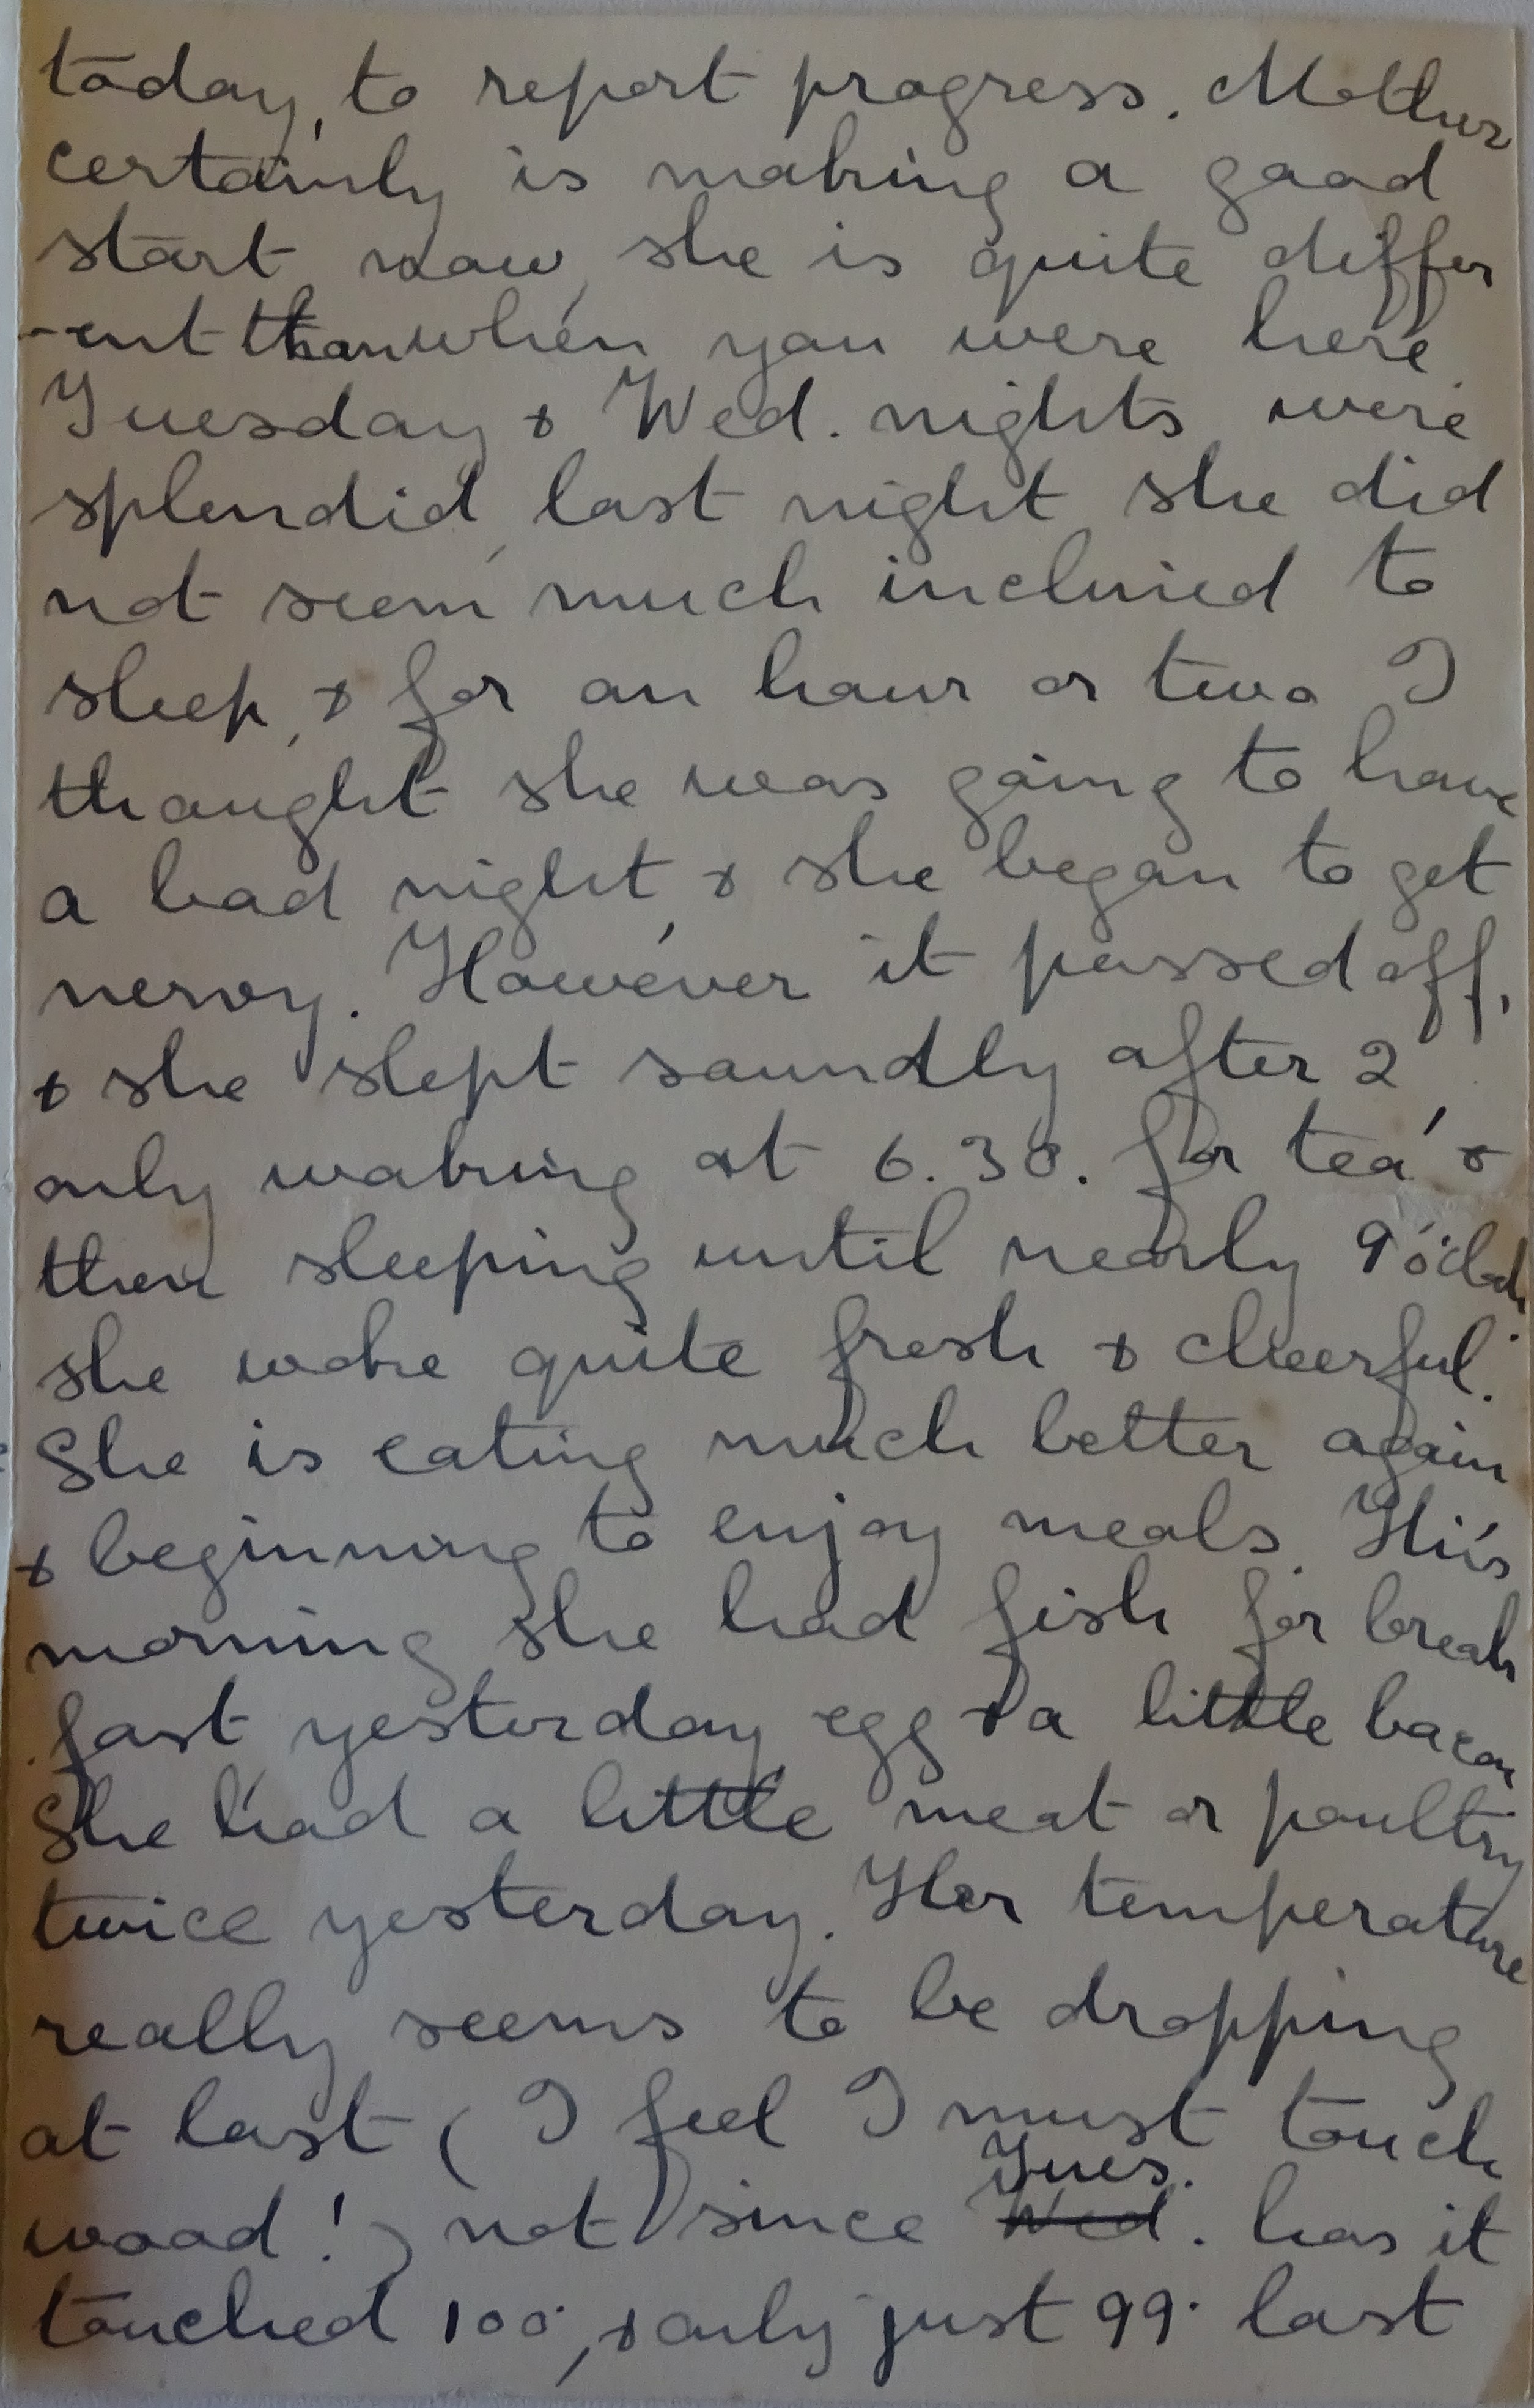 today, to report progress. Mother
certainly is making a good
start now, she is quite differ
-ent than when you were here.
Tuesday & Wed. nights were
splendid, last night she did
not seem much inclined to
sleep, & for an hour or two I
thought she was going to have
a bad night, & she began to get
nervy. However it passed off,
& she slept soundly after 2,
only waking at 6.30. for tea &
then sleeping until nearly 9 o'clock.
she woke quite fresh & cheerful.
She is eating much better again
& beginning to enjoy meals. This
morning she had fish for break
fast yesterday, egg & a little bacon
She had a little meat or poultry
twice yesterday. Her temperature
really seems to be dropping
at last (I feel I must touch
wood!) not since ~~Wed.~~ Tues. has it
touched 100°, & only just 99° last